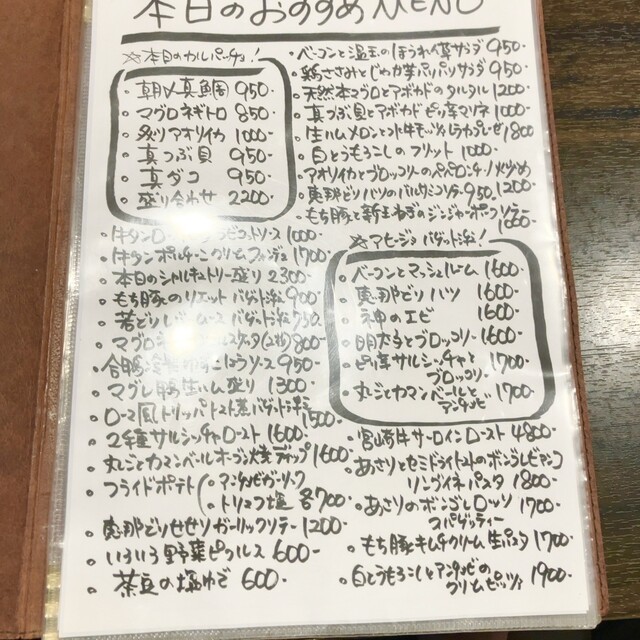 本日のおすすめMENU
☆本日のカルパッチョ!
・朝〆真鯛 950-
・マグロネギトロ 850-
・炙りアオリイカ 1000-
・真つぶ貝 950-
・真ダコ 950-
・盛り合わせ 2200-
・牛タン 1000-
・牛タンポルチーニクリームフォンデュ 1700
・本日のシャルキュトリー盛り 2300-
・もち豚のリエット バゲット添 900-
・若どりレバームース バゲット添 750-
・マグロ (2枚) 800-
・合鴨冷 こしょうソース 950-
・マグレ鴨生ハム盛り 1300-
・ローマ風トリッパトマト煮バゲット添 1500-
・2種サルシッチャロースト 1600-
・丸ごとカマンベールオーブン焼きディップ 1600-
・フライドポテト(・アンチョビガーリック
・トリュフ塩 各700-
・恵那どりせせりガーリックソテー 1200-
・いろいろ野菜ピクルス 600-
・茶豆の塩ゆで 600-
・ベーコンと温玉のほうれん草サラダ 950-
・鶏ささみとじゃが芋パリパリサラダ 950-
・天然本マグロとアボカドのタルタル 1200-
・真つぶ貝とアボカドピリ辛マリネ 1000-
・生ハムメロンと水牛モッツァレラカプレーゼ 1800
・白とうもろこしのフリット 1000-
・アオリイカとブロッコリーのペペロンチーノ炒め 1200-
・恵那どりハツのバルサミコソテー 950-
・もち豚と新玉ねぎのジンジャーポークソテー 1600-
☆アヒージョ バゲット添!
・ベーコンとマッシュルーム 1600-
・恵那どりハツ 1600-
・天神のエビ 1600-
・明太子とブロッコリー 1600-
・ピリ辛サルシッチャとブロッコリー 1700-
・丸ごとカマンベールとアンチョビ 1700-
・宮崎牛サーロインロースト 4800-
・あさりとセミドライトマトのボンゴレビアンコ
リングイネパスタ 1800-
・あさりのボンゴレロッソ
スパゲッティー 1700-
・もち豚キムチクリーム生パスタ 1700-
・白とうもろこしとアンチョビの
クリームピッツァ 1900-